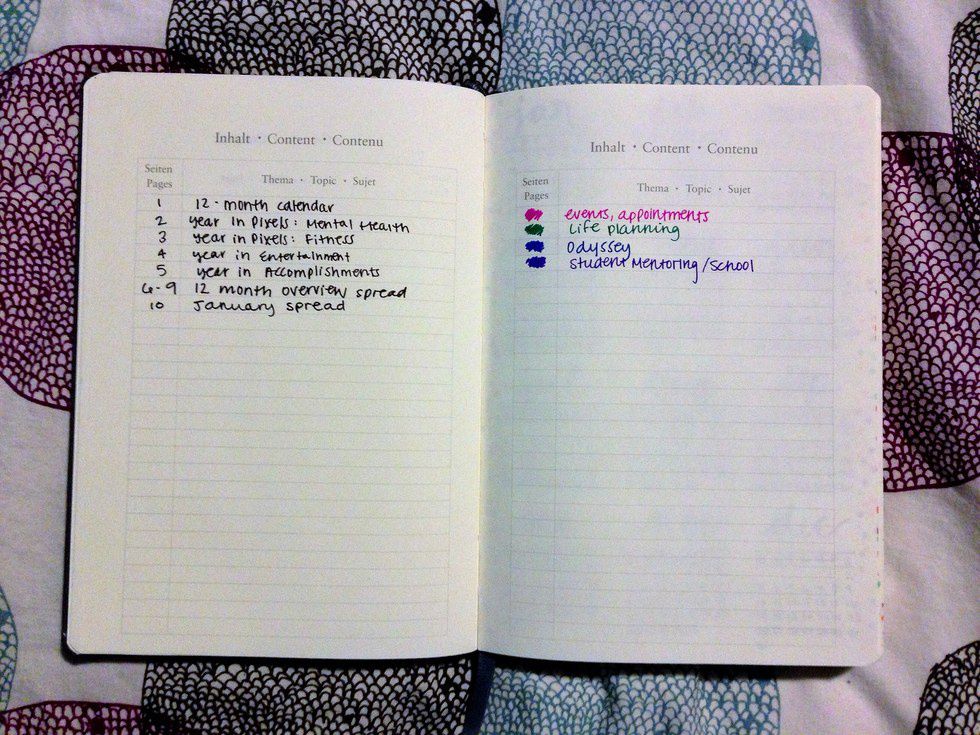 Inhalt · Content · Contenu
Seiten
Pages
Thema · Topic · Sujet
1 12-month calendar
2 year in Pixels: Mental Health
3 year in Pixels: Fitness
4 year in Entertainment
5 year in Accomplishments
6-9 12 month overview spread
10 January spread
Inhalt · Content · Contenu
Seiten
Pages
Thema · Topic · Sujet
events, appointments
Life planning
Odyssey
Student Mentoring/School